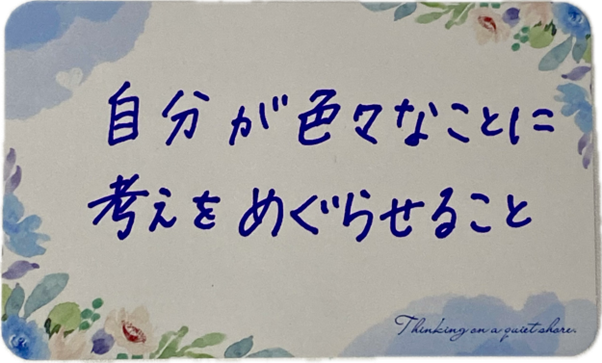 自分が色々なことに
考えをめぐらせること
Thinking on a quiet shore.